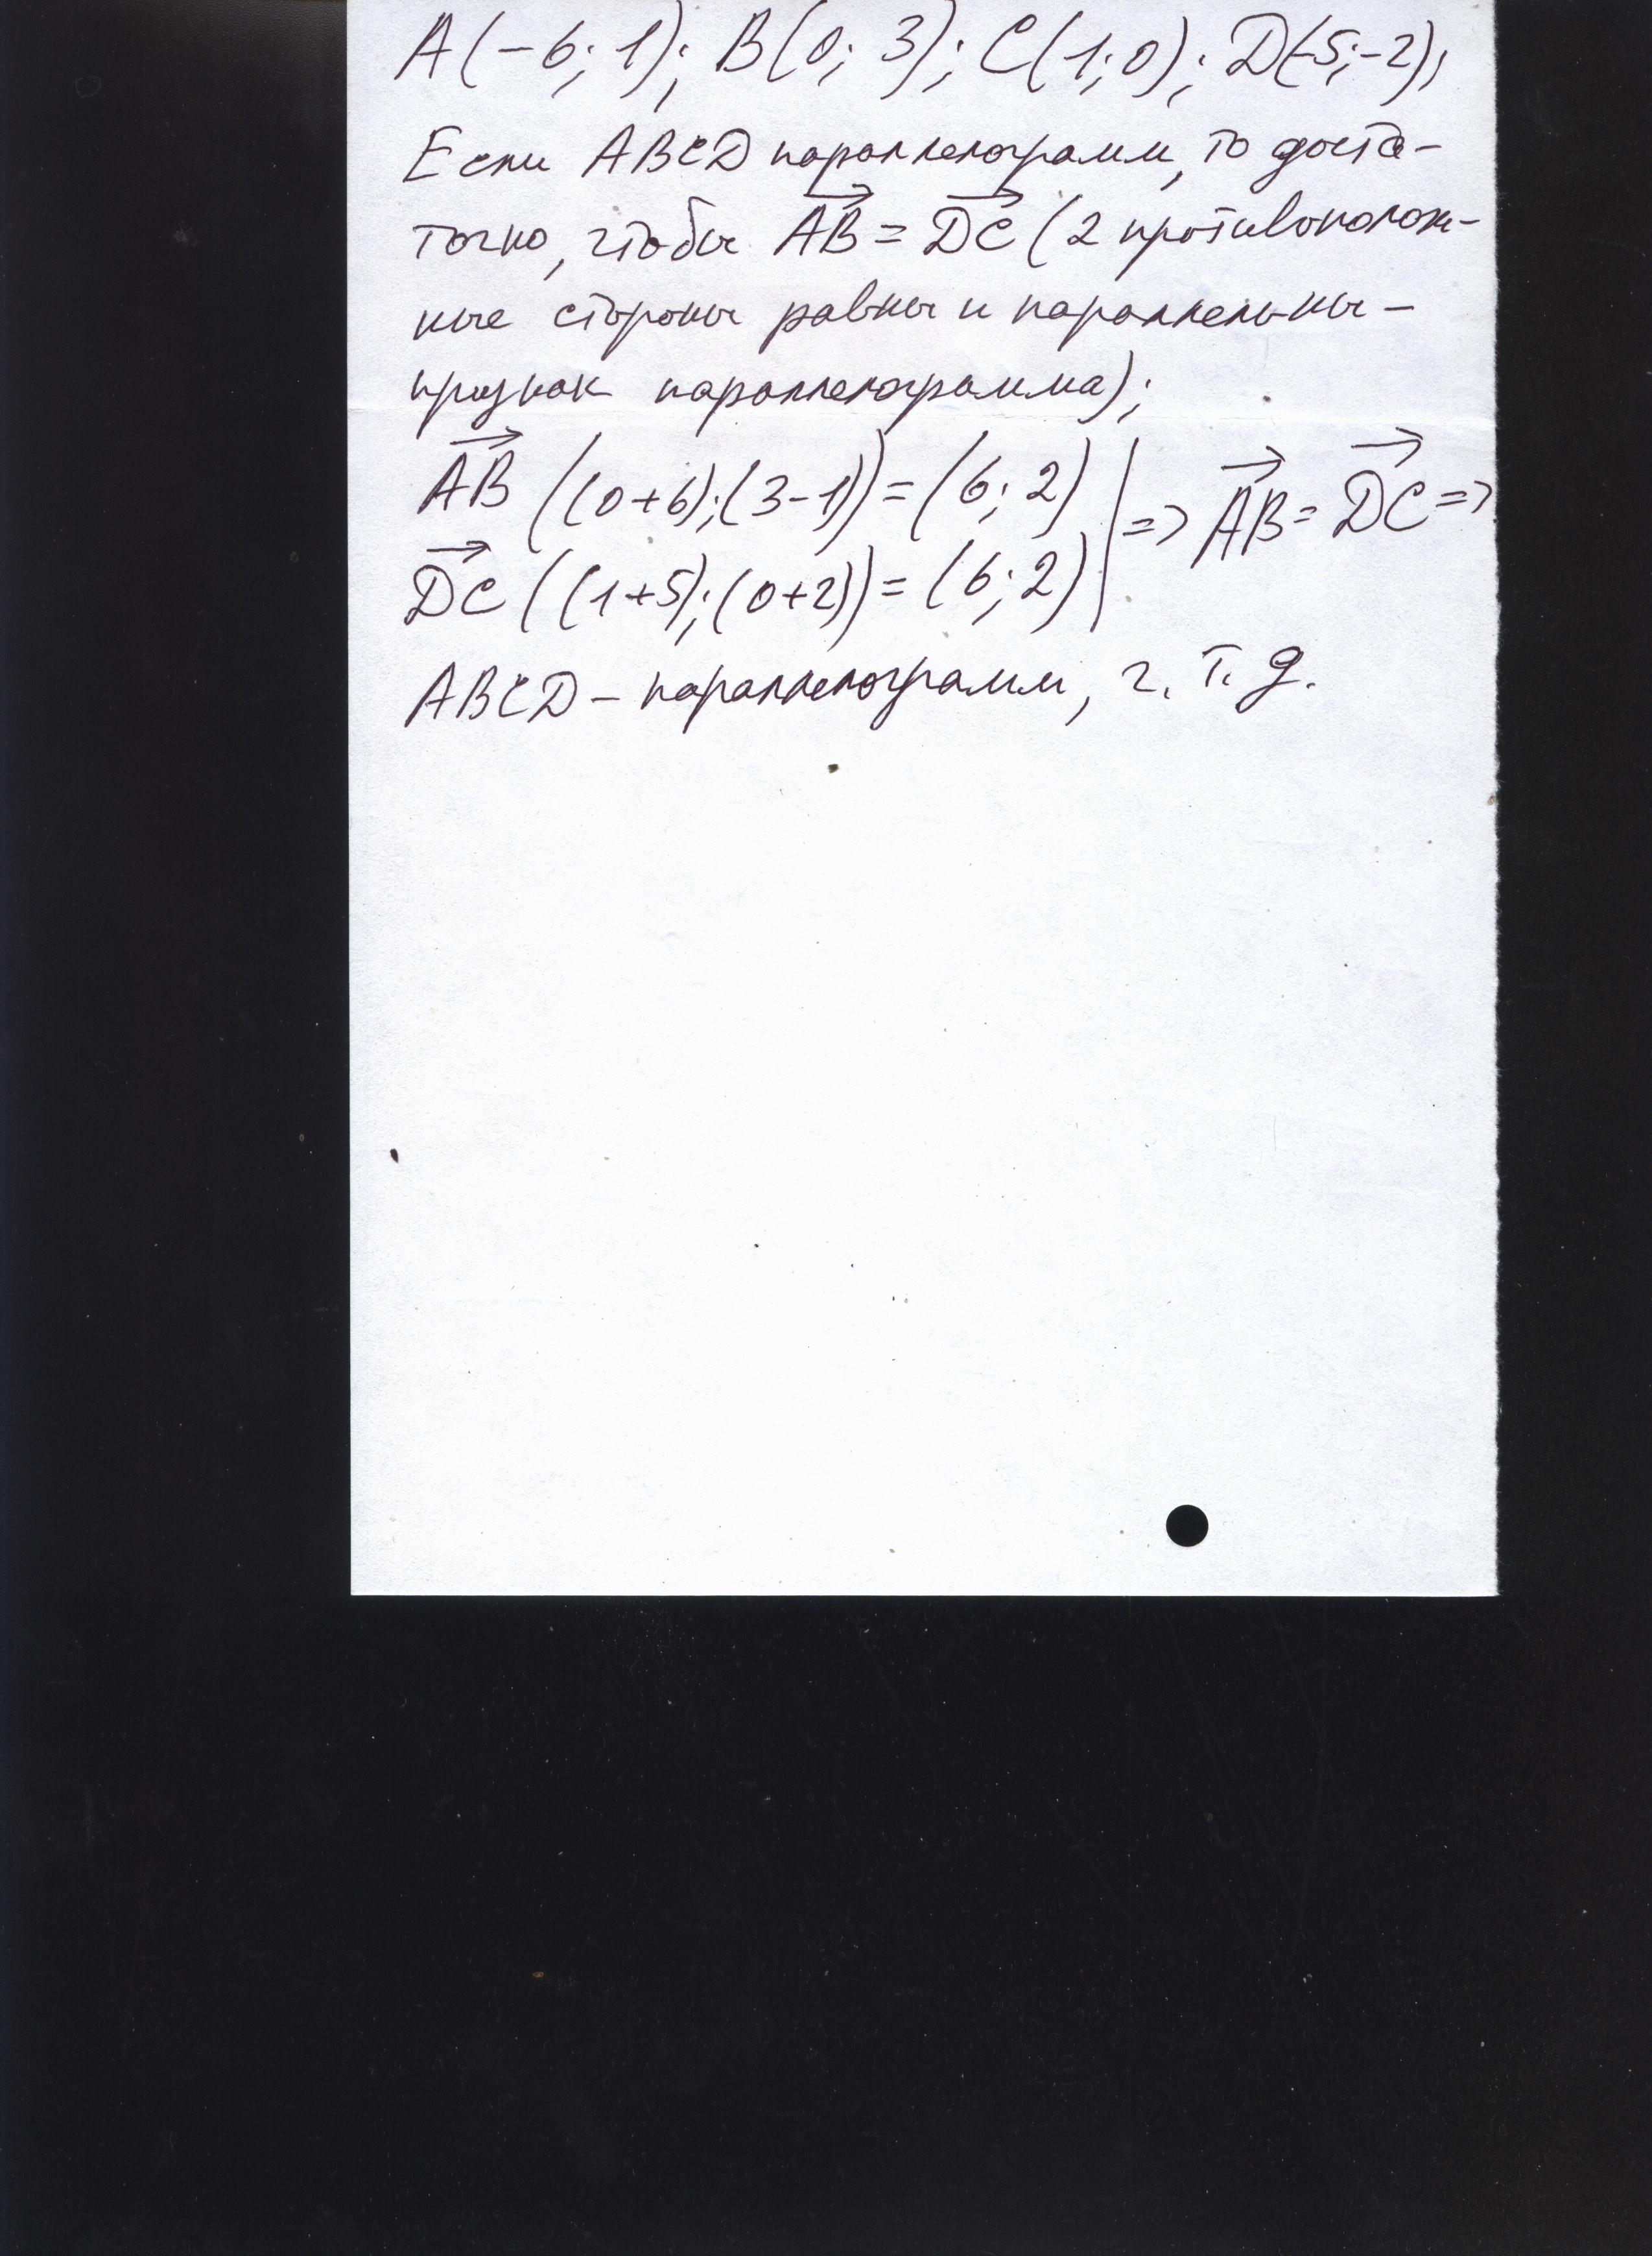 A(-6; 1); B(0; 3); C(1; 0); D(-5; -2);
Если ABCD параллелограмм, то доста-
точно, чтобы AB→ = DC→ (2 противополож-
ные стороны равны и параллельны -
признак параллелограмма);
AB→ ((0+6); (3-1)) = (6; 2) | => AB→ = DC→ =>
DC→ ((1+5); (0+2)) = (6; 2)
ABCD - параллелограмм, ч. т. д.